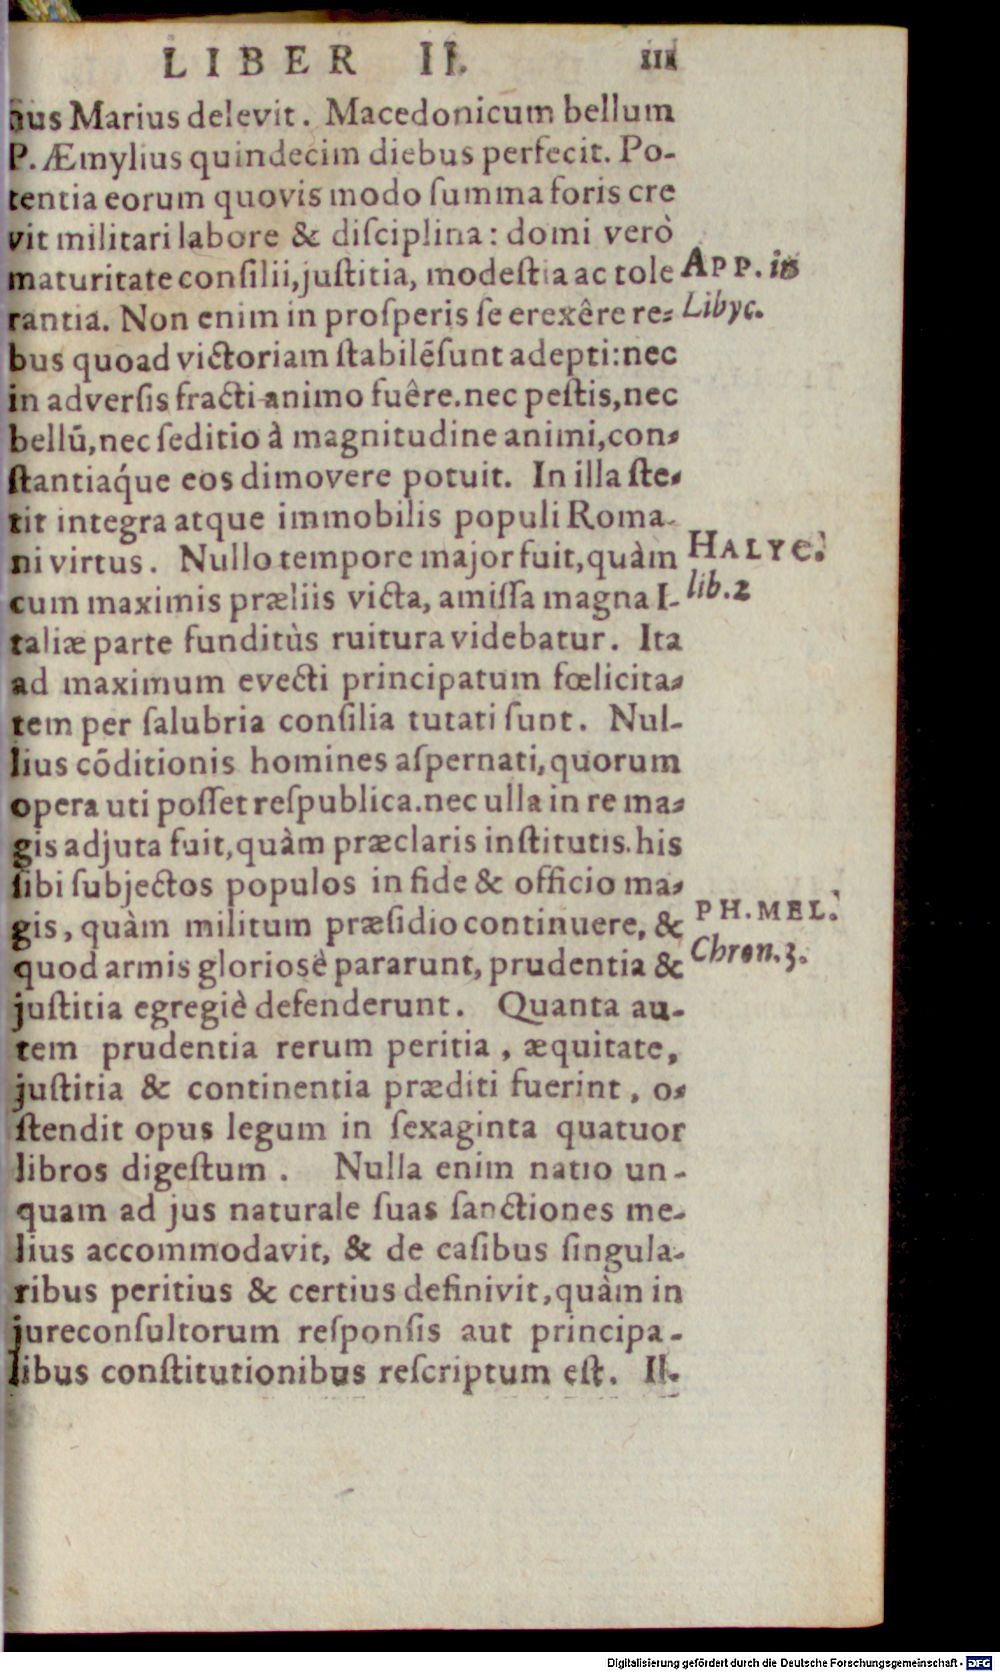 LIBER II. III
nus Marius delevit. Macedonicum bellum
P. Æmylius quindecim diebus perfecit. Po-
tentia eorum quovis modo ſumma foris cre
vit militari labore & diſciplina: domi verò
maturitate conſilii, juſtitia, modeſtia ac tole
APP. in
rantia. Non enim in proſperis ſe erexêre re-
Libyc.
bus quoad victoriam ſtabilē ſunt adepti: nec
in adverſis fracti animo fuêre. nec peſtis, nec
bellū, nec ſeditio à magnitudine animi, con-
ſtantiáque eos dimovere potuit. In illa ſte-
tit integra atque immobilis populi Roma-
ni virtus. Nullo tempore major fuit, quàm
HALYC.
cum maximis præliis victa, amiſſa magna I-
lib. 2
taliæ parte funditùs ruitura videbatur. Ita
ad maximum evecti principatum fœlicita-
tem per ſalubria conſilia tutati ſunt. Nul-
lius cōditionis homines aſpernati, quorum
opera uti poſſet reſpublica. nec ulla in re ma-
gis adjuta fuit, quàm præclaris inſtitutis. his
ſibi ſubjectos populos in fide & officio ma-
gis, quàm militum præſidio continuere, &
PH. MEL.
quod armis glorioſè pararunt, prudentia &
Chron. 3.
juſtitia egregiè defenderunt. Quanta au-
tem prudentia rerum peritia, æquitate,
juſtitia & continentia præditi fuerint, o-
ſtendit opus legum in ſexaginta quatuor
libros digeſtum. Nulla enim natio un-
quam ad jus naturale ſuas ſanctiones me-
lius accommodavit, & de caſibus ſingula-
ribus peritius & certius definivit, quàm in
jureconſultorum reſponſis aut principa-
libus conſtitutionibus reſcriptum eſt. Il-
Digitalisierung gefördert durch die Deutsche Forschungsgemeinschaft - DFG